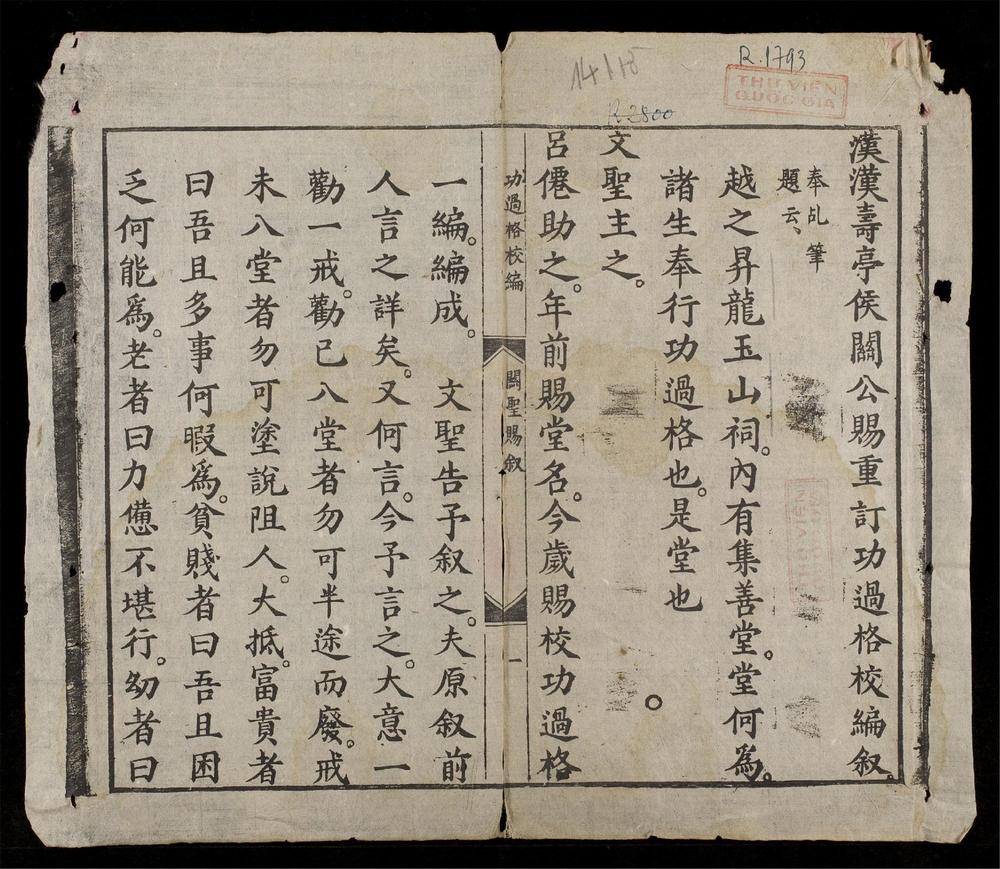 R.1793
14118
R.2800
THƯ VIỆN
QUỐC GIA
漢漢壽亭侯關公賜重訂功過格校編叙。
奉乩筆
題云、
越之昇龍玉山祠。內有集善堂。堂何為。
諸生奉行功過格也。是堂也
文聖主之。
呂僊助之。年前賜堂名。今歲賜校功過格
功過格校編
關聖賜叙
一
一編。編成。 文聖告予叙之。夫原叙前
人言之詳矣。又何言。今予言之。大意一
勸一戒。勸已八堂者勿可半途而廢。戒
未八堂者勿可塗說阻人。大抵。富貴者
曰吾且多事何暇爲。貧賤者曰吾且困
乏何能爲。老者曰力憊不堪行。幼者曰
THƯ VIỆN